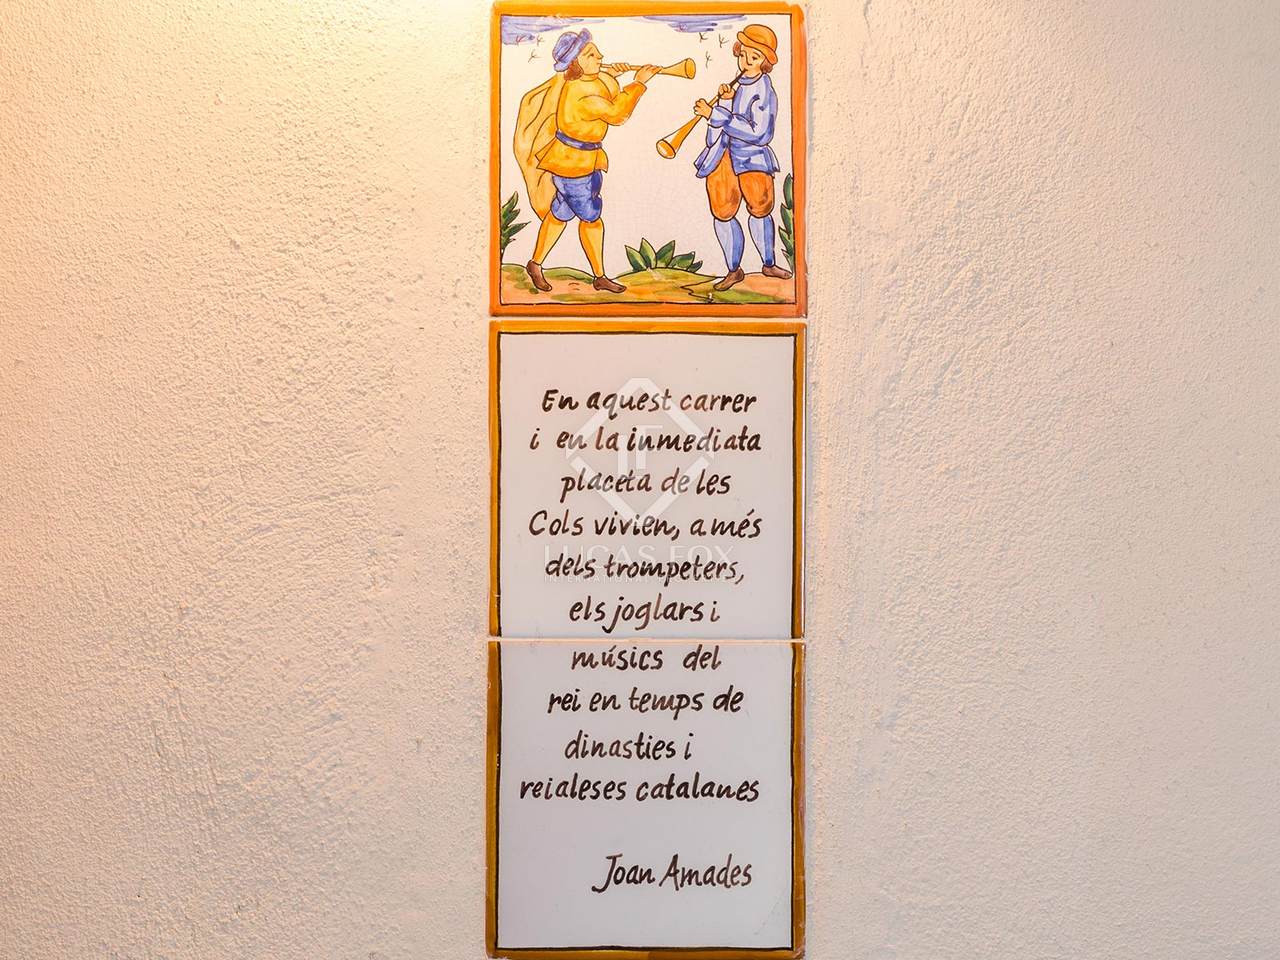 En aquest carrer
i en la inmediata
placeta de les
Cols vivien, a més
dels trompeters,
els joglars i
músics del
rei en temps de
dinasties i
reialeses catalanes
Joan Amades
LUCAS FOX